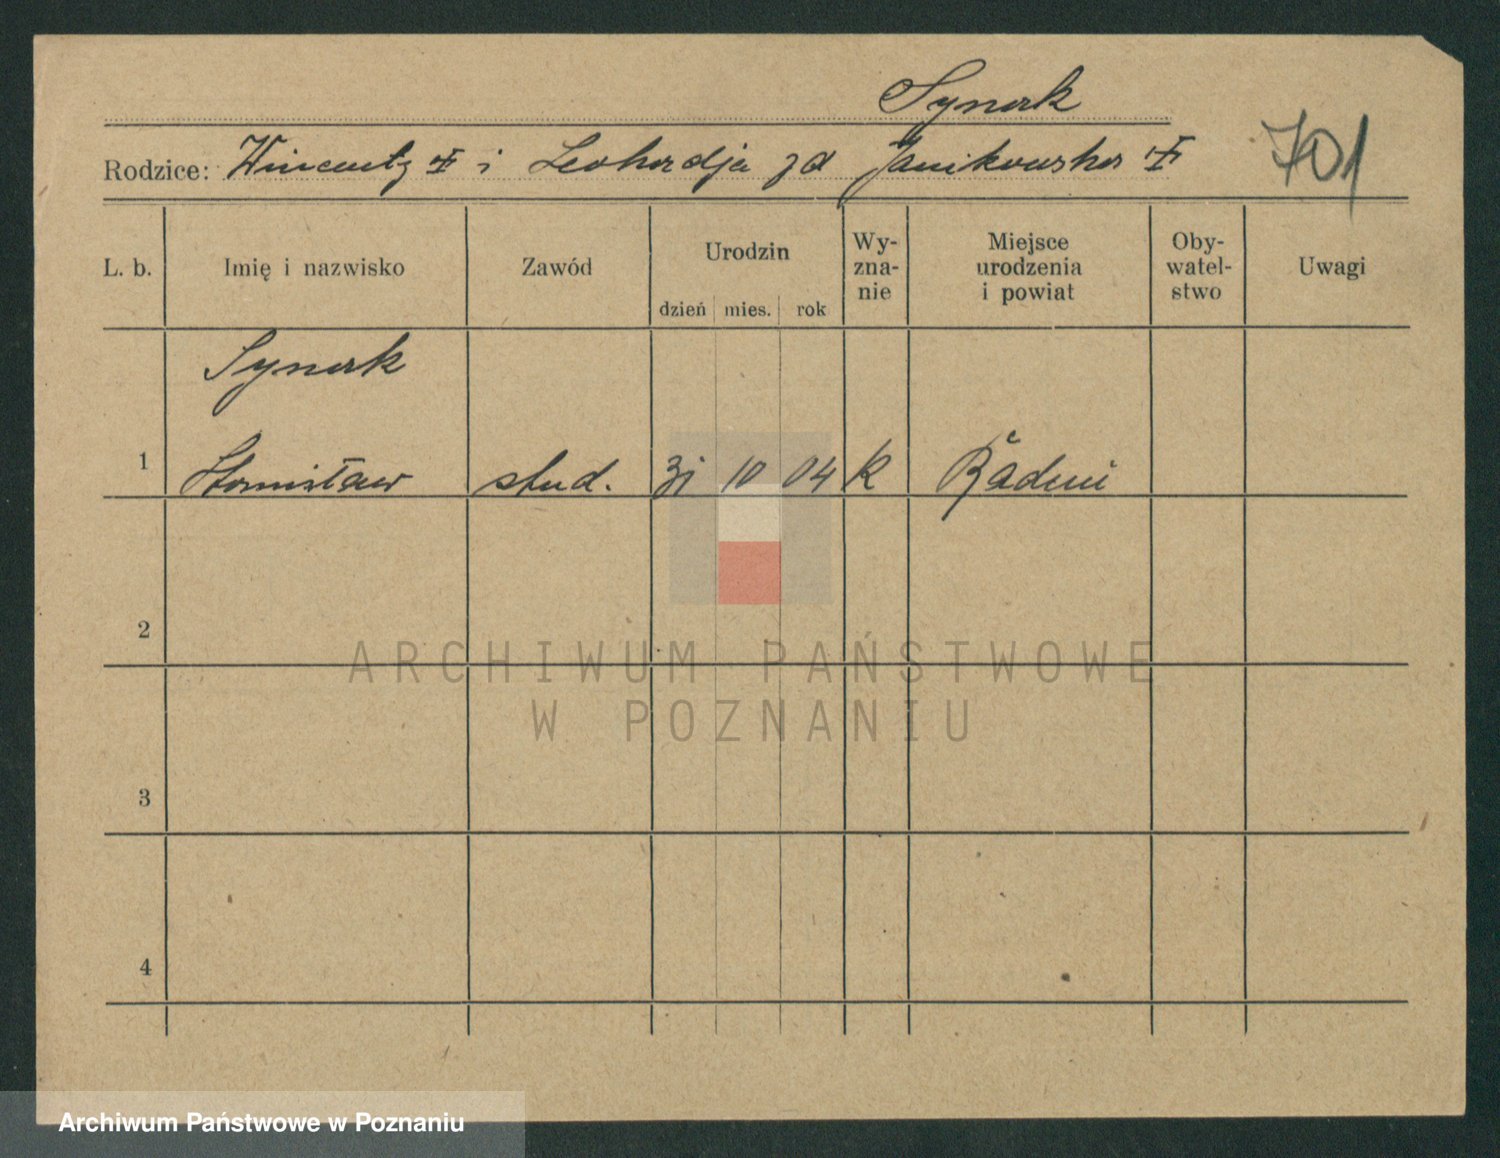 Synork
Rodzice: Wincenty i Leokordja zd Janikowska
701
L. b. Imię i nazwisko Zawód Urodzin dzień mies. rok Wy-zna-nie Miejsce urodzenia i powiat Oby-watel-stwo Uwagi
Synork
1 Stanisław stud. 31 10 04 k
2
ARCHIWUM PAŃSTWOWE
W POZNANIU
3
4
Archiwum Państwowe w Poznaniu